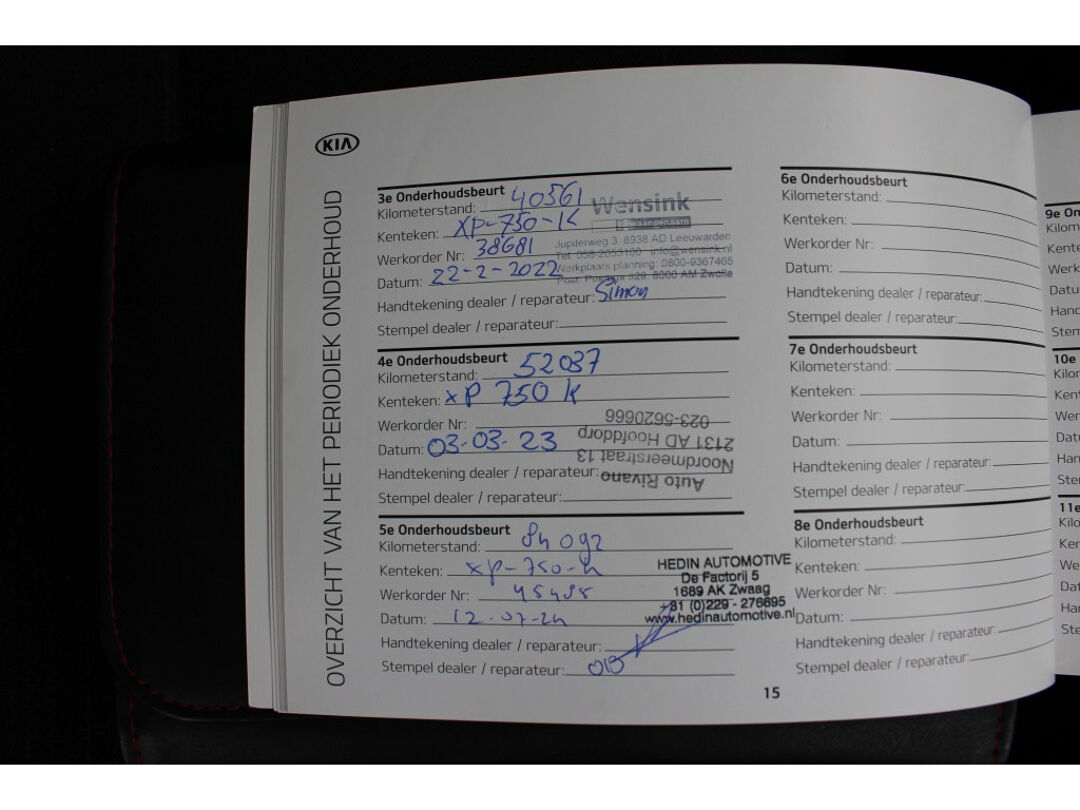 KIA
OVERZICHT VAN HET PERIODIEK ONDERHOUD
3e Onderhoudsbeurt
Kilometerstand: 40561
Kenteken: XP-750-K
Werkorder Nr: 38681
Datum: 22-2-2022
Handtekening dealer / reparateur: Simon
Stempel dealer / reparateur:
Wensink
aangenaam
Jupiterweg 3, 8938 AD Leeuwarden
info@wensink.nl
Werkplaats planning: 0800-9367465
8000 AM Zwolle
4e Onderhoudsbeurt
Kilometerstand: 52037
Kenteken: XP 750 K
Werkorder Nr:
Datum: 03-03-23
Handtekening dealer / reparateur:
Stempel dealer / reparateur:
Auto Rivano
Noordmeerstraat 13
2131 AD Hoofddorp
023-5620666
5e Onderhoudsbeurt
Kilometerstand: 84092
Kenteken: XP-750-K
Werkorder Nr:
Datum: 12-07-24
Handtekening dealer / reparateur:
Stempel dealer / reparateur:
HEDIN AUTOMOTIVE
De Factorij 5
1689 AK Zwaag
+31 (0)229 - 276695
www.hedinautomotive.nl
15
6e Onderhoudsbeurt
Kilometerstand:
Kenteken:
Werkorder Nr:
Datum:
Handtekening dealer / reparateur:
Stempel dealer / reparateur:
7e Onderhoudsbeurt
Kilometerstand:
Kenteken:
Werkorder Nr:
Datum:
Handtekening dealer / reparateur:
Stempel dealer / reparateur:
8e Onderhoudsbeurt
Kilometerstand:
Kenteken:
Werkorder Nr:
Datum:
Handtekening dealer / reparateur:
Stempel dealer / reparateur:
9e On
Kilom
Kente
Werk
Datu
Hand
Stem
10e
Kilor
Kent
Wer
Dat
Har
Ste
11e
Kilo
Ker
We
Dat
Ha
Ste